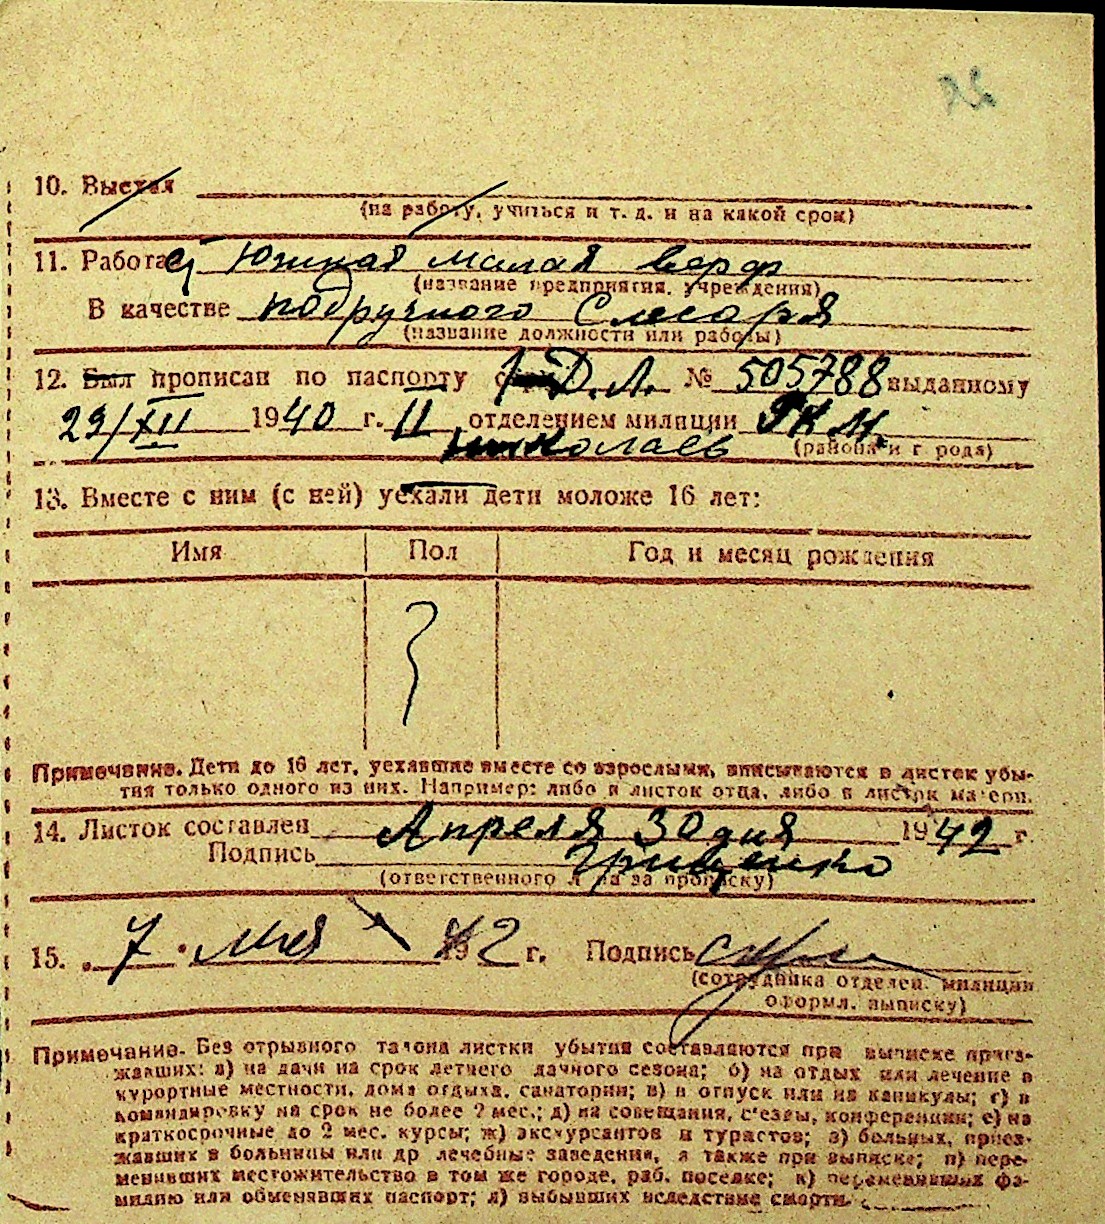 10. Выехал
(на работу, учиться и т. д. и на какой срок)
11. Работает Южная малая верф
(название предприятия, учреждения)
В качестве подручного Слесаря
(название должности или работы)
12. Был прописан по паспорту Д. Л. № 505788 выданному
29/XII 1940 г. II отделением милиции РКМ
Николаев (района и города)
13. Вместе с ним (с ней) уехали дети моложе 16 лет:
Имя Пол Год и месяц рождения
Примечание. Дети до 16 лет, уехавшие вместе со взрослыми, вписываются в листок убы-
тия только одного из них. Например: либо в листок отца, либо в листок матери.
14. Листок составлен Апреля 30 дня 1942 г.
Подпись Грищенко
(ответственного лица за прописку)
15. „ 7 " Мая 1942 г. Подпись
(сотрудника отделен. милиции
оформл. выписку)
Примечание. Без отрывного талона листки убытия составляются при выписке приез-
жавших: а) на дачи на срок летнего дачного сезона; б) на отдых или лечение в
курортные местности, дома отдыха, санатории; в) в отпуск или на каникулы; г) в
командировку на срок не более 2 мес.; д) на совещания, с'езды, конференции; е) на
краткосрочные до 2 мес. курсы; ж) экскурсантов и туристов; з) больных, приез-
жавших в больницы или др лечебные заведения, а также при выписке; и) пере-
менивших местожительство в том же городе, раб. поселке; к) переменивших фа-
милию или обменявших паспорт; л) выбывших вследствие смерти.